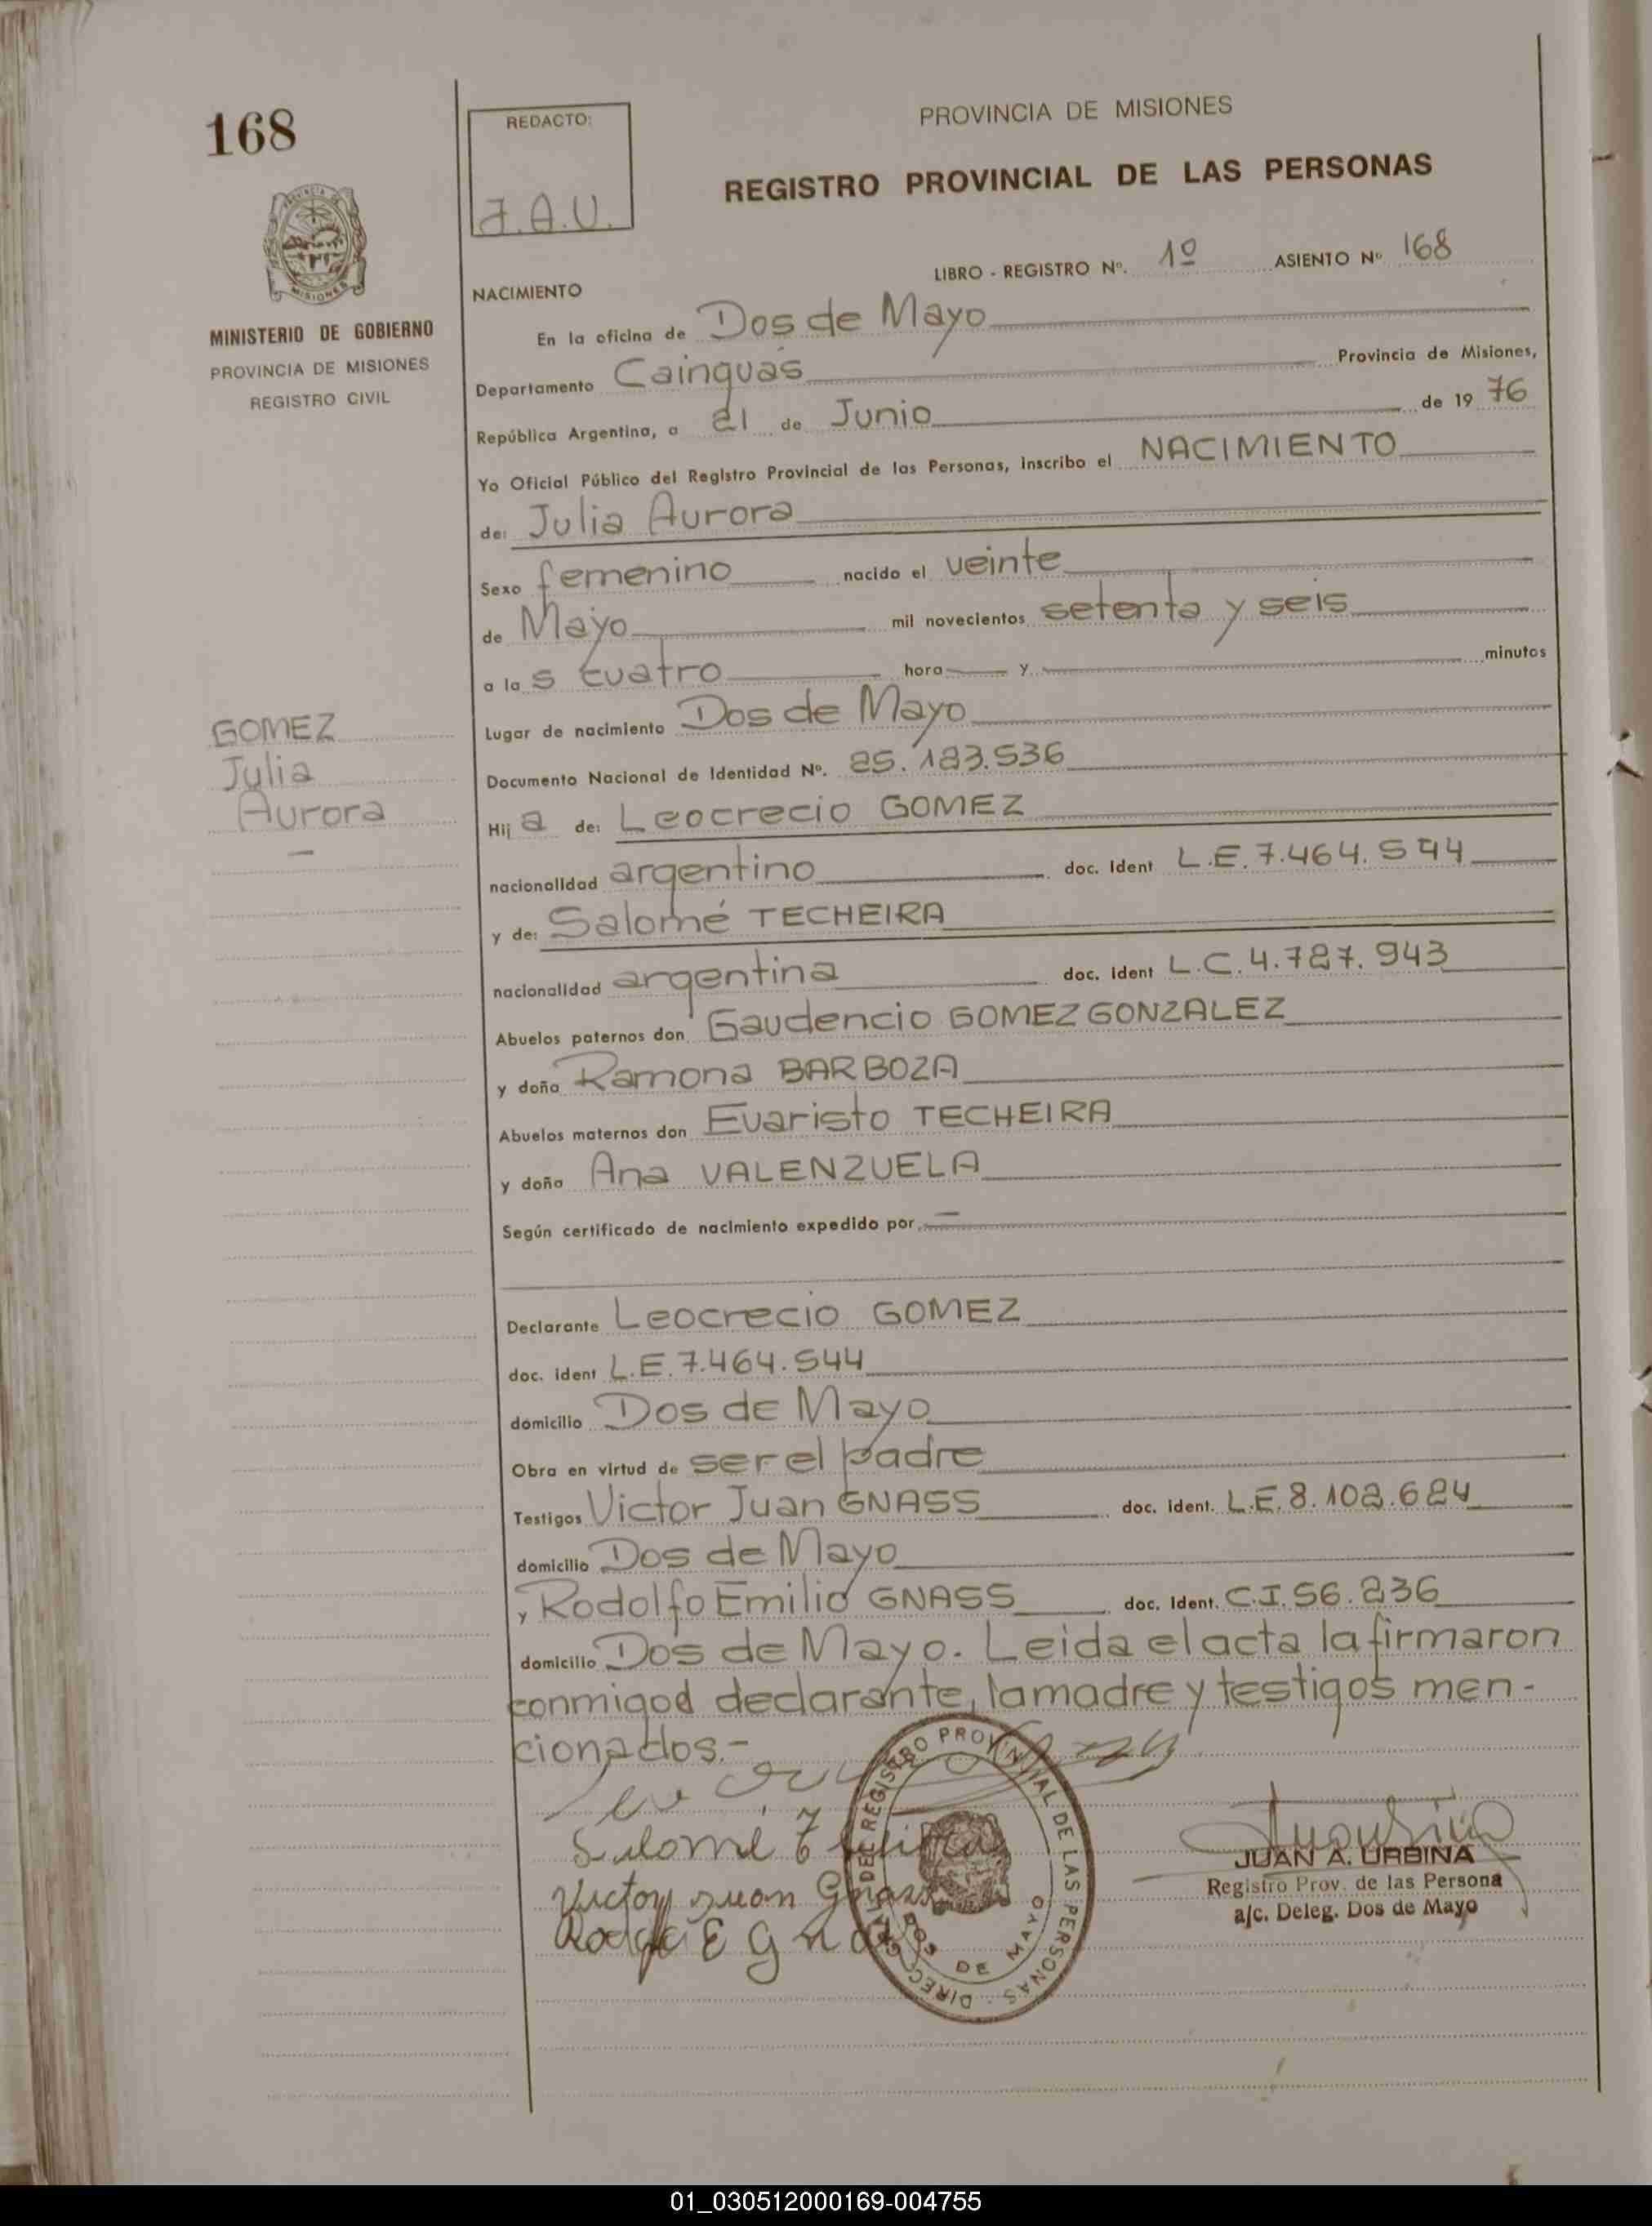 168
REDACTO:
J.A.U.
PROVINCIA DE MISIONES
REGISTRO PROVINCIAL DE LAS PERSONAS
PROVINCIA
MISIONES
MINISTERIO DE GOBIERNO
PROVINCIA DE MISIONES
REGISTRO CIVIL
LIBRO - REGISTRO Nº. 1º ASIENTO Nº 168
NACIMIENTO
En la oficina de Dos de Mayo
Departamento Cainguás Provincia de Misiones,
República Argentina, a 21 de Junio de 19 76
Yo Oficial Público del Registro Provincial de las Personas, inscribo el NACIMIENTO
de: Julia Aurora
Sexo femenino nacido el veinte
de Mayo mil novecientos setenta y seis
a la s cuatro hora y minutos
Lugar de nacimiento Dos de Mayo
GOMEZ
Julia
Aurora
Documento Nacional de Identidad Nº. 25.183.536
Hij a de: Leocrecio GOMEZ
nacionalidad argentino doc. Ident L.E. 7.464.544
y de: Salomé TECHEIRA
nacionalidad argentina doc. ident L.C. 4.787.943
Abuelos paternos don Gaudencio GOMEZ GONZALEZ
y doña Ramona BARBOZA
Abuelos maternos don Evaristo TECHEIRA
y doña Ana VALENZUELA
Según certificado de nacimiento expedido por
Declarante Leocrecio GOMEZ
doc. ident L.E. 7.464.544
domicilio Dos de Mayo
Obra en virtud de ser el padre
Testigos Victor Juan GNASS doc. ident. L.E. 8.102.624
domicilio Dos de Mayo
y Rodolfo Emilio GNASS doc. Ident. C.I. 56.236
domicilio Dos de Mayo. Leida el acta la firmaron
conmigo el declarante, la madre y testigos men-
cionados.-
Salomé
Victor Juan Gnass
E
DIRECC. GRAL. DEL REGISTRO PROVINCIAL DE LAS PERSONAS
DOS DE MAYO
JUAN A. URBINA
Registro Prov. de las Persona
a/c. Deleg. Dos de Mayo
01_030512000169-004755